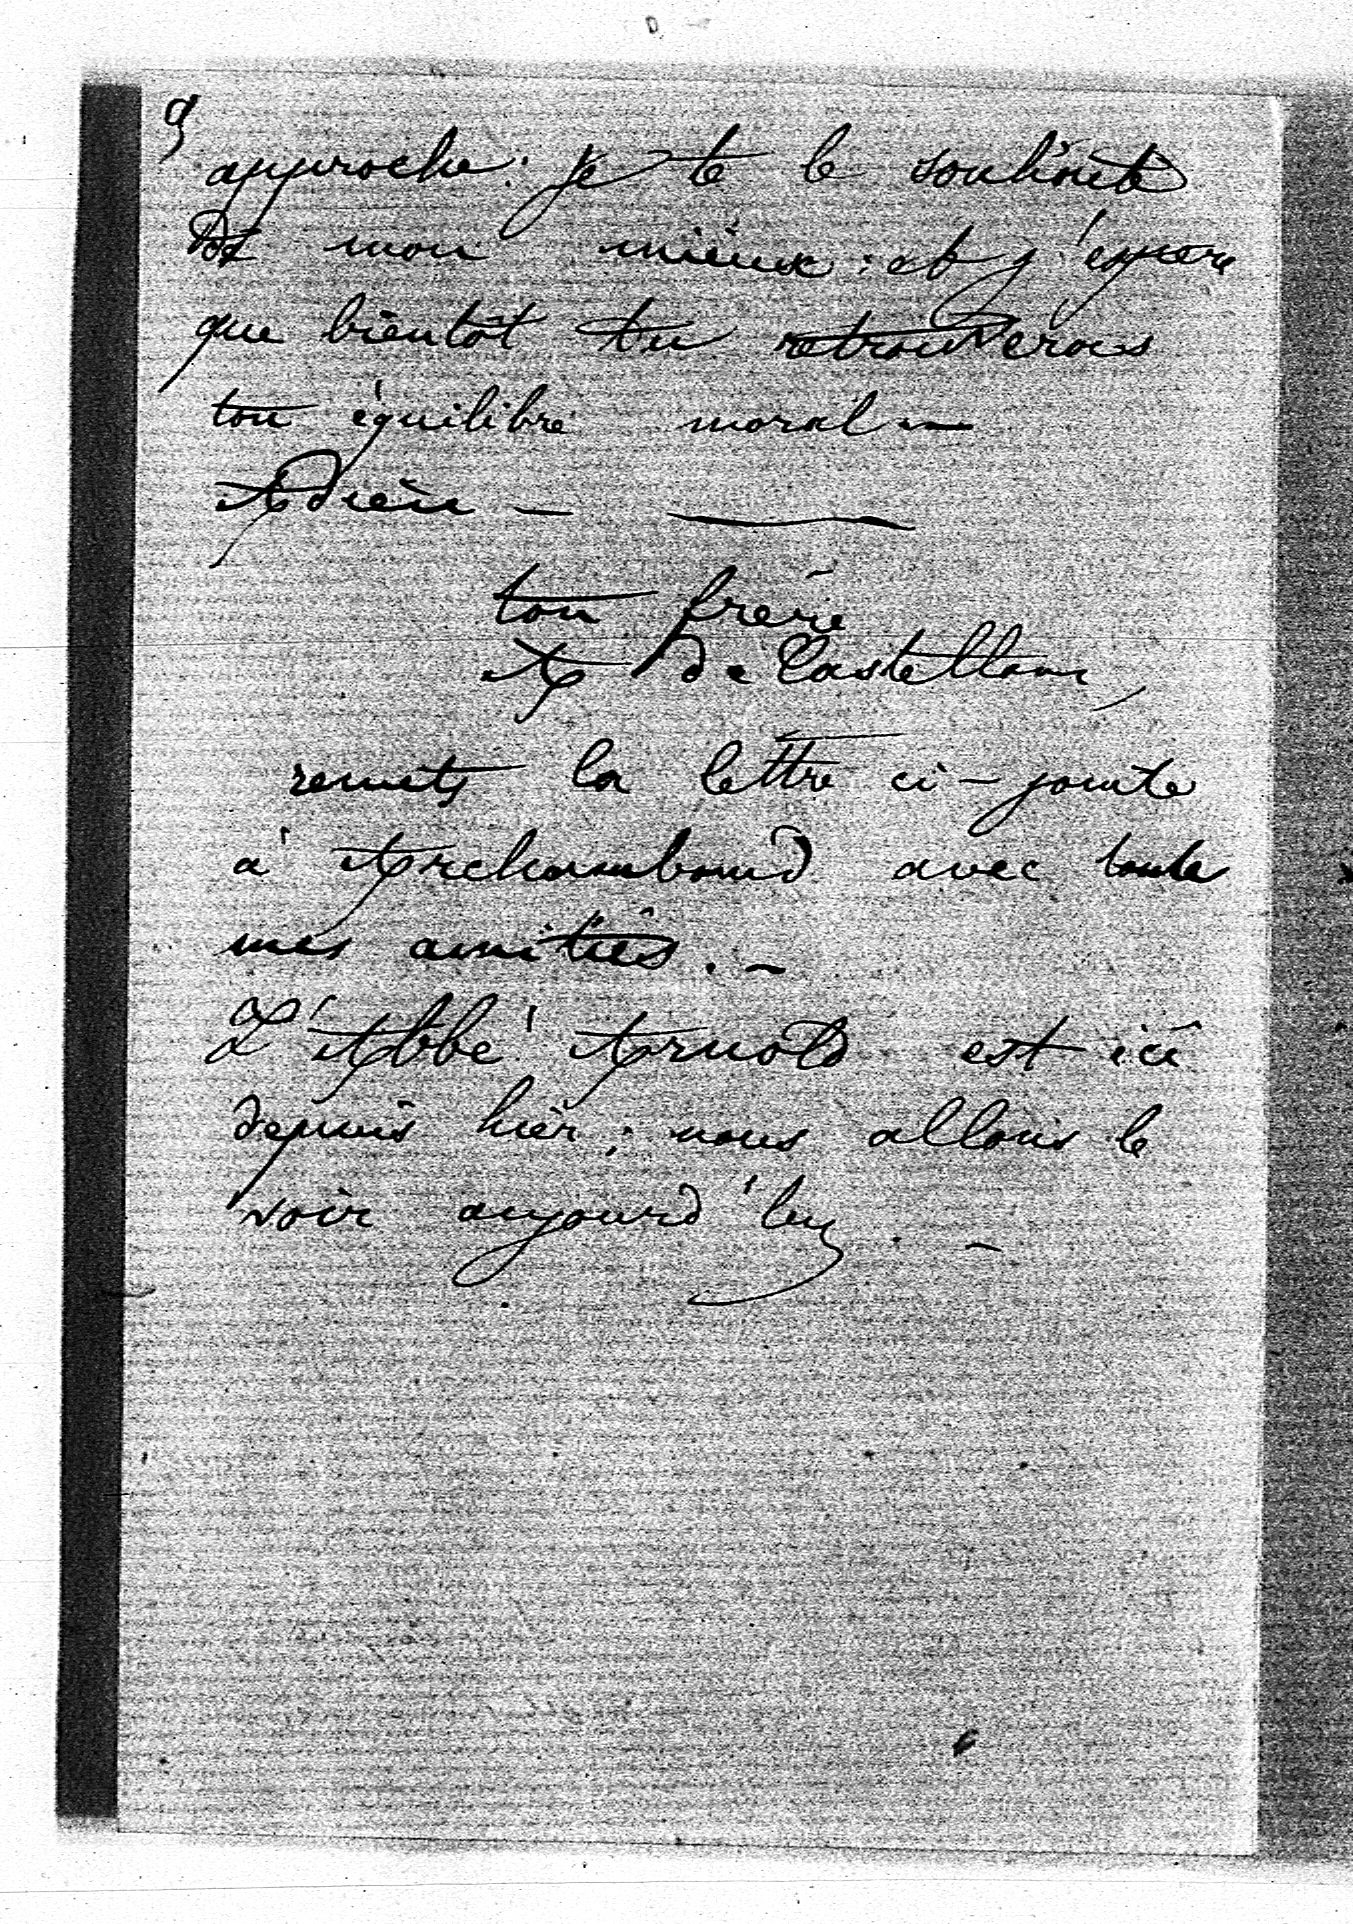 9
approche : je te le souhaite
de mon mieux : et j'espère
que bientôt tu retrouveras
ton équilibre moral —
Adieu —
ton frère
A de Castellane
remets la lettre ci-jointe
à Archambaud avec toutes
mes amitiés. —
L'Abbé Arnold est ici
depuis hier ; nous allons le
voir aujourd'huy. —